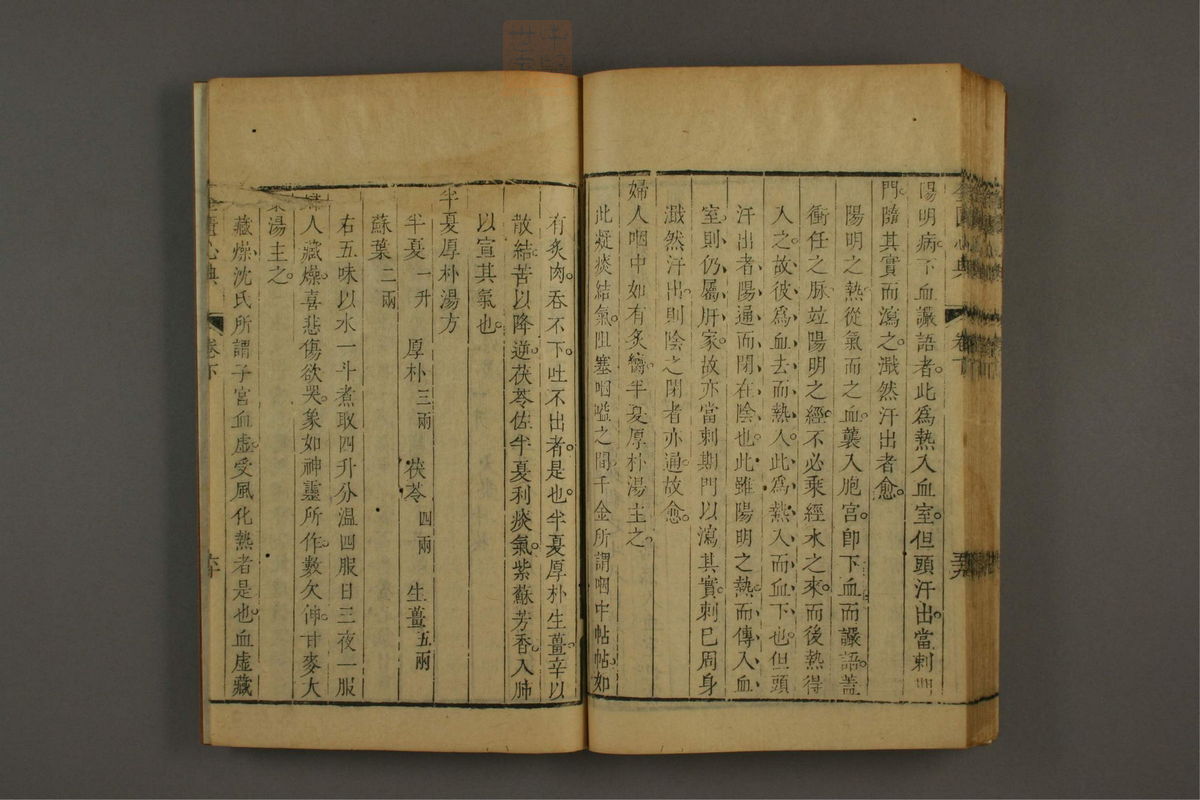 陽明病。下血讝語者。此爲熱入血室。但頭汗出。當刺期
門。隨其實而瀉之。濈然汗出者愈。
陽明之熱從氣而之血。襲入胞宮。卽下血而讝語。蓋
衝任之脉。竝陽明之經。不必乘經水之來。而後熱得
入之。故彼爲血去而熱入。此爲熱入而血下也。但頭
汗出者。陽通而閉在陰也。此雖陽明之熱。而傳入血
室。則仍屬肝家。故亦當刺期門以瀉其實。刺已周身
濈然汗出。則陰之閉者亦通。故愈。
婦人咽中如有炙臠。半夏厚朴湯主之。
此凝痰結氣。阻塞咽嗌之間。千金所謂咽中帖帖。如
有炙肉。吞不下。吐不出者。是也。半夏厚朴生薑。辛以
散結。苦以降逆。茯苓佐半夏利痰氣。紫蘇芳香。入肺
以宣其氣也。
半夏厚朴湯方
半夏一升 厚朴三兩 茯苓四兩 生薑五兩
蘇葉二兩
右五味以水一斗煮取四升分溫四服日三夜一服
婦人藏燥。喜悲傷欲哭。象如神靈所作。數欠伸。甘麥大
棗湯主之。
藏燥。沈氏所謂子宮血虛。受風化熱者是也。血虛藏
金匱心典 卷下